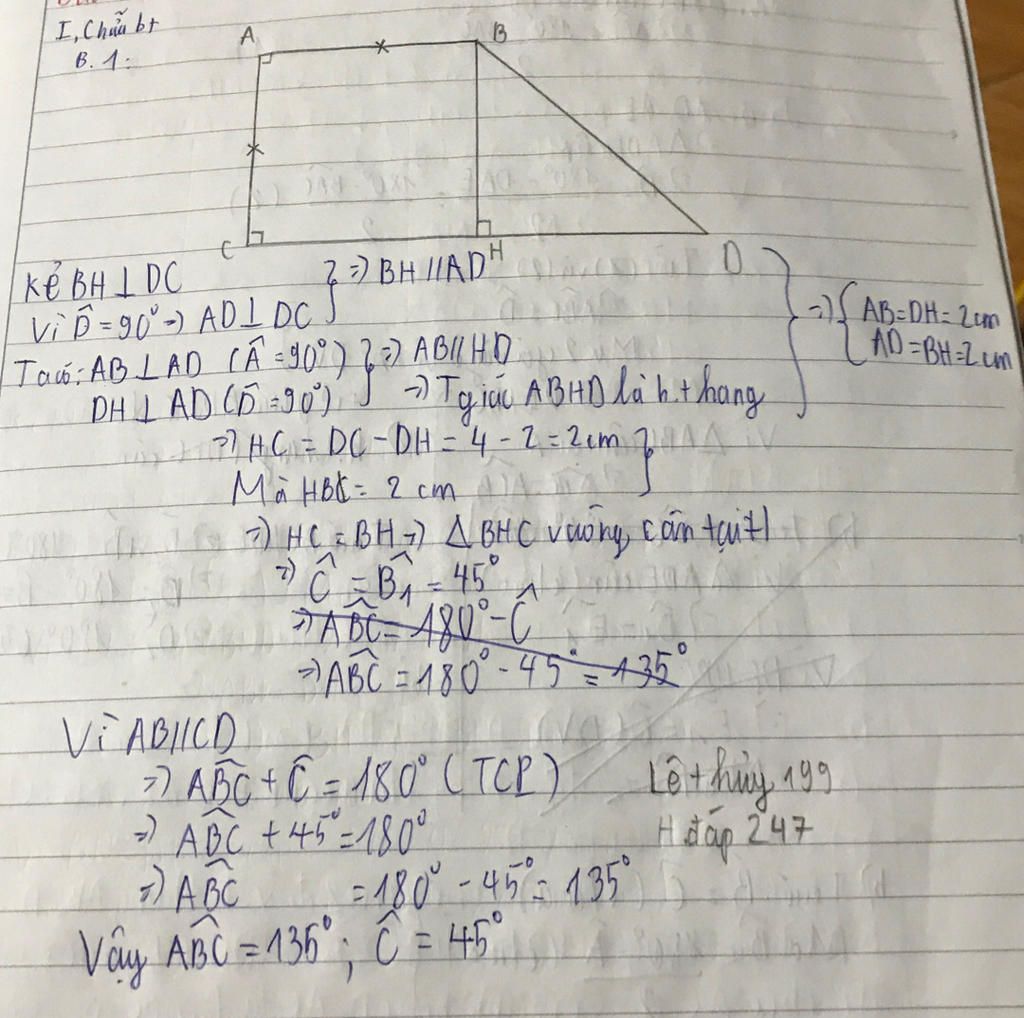 I, Chữa bt
B. 1:
A
B
C
H
D
Kẻ BH ⊥ DC
Vì D̂ = 90° => AD ⊥ DC
=> BH // AD
Ta có: AB ⊥ AD (Â = 90°)
DH ⊥ AD (D̂ = 90°)
=> AB // HD
=> Tgiác ABHD là h.thang
=> { AB = DH = 2cm
AD = BH = 2cm
=> HC = DC - DH = 4 - 2 = 2cm
Mà = 2 cm
=> HC = BH => Δ BHC vuông cân tại H
=> Ĉ = B̂₁ = 45°
=> AB̂C = 180° - Ĉ
=> AB̂C = 180° - 45° = 135°
Vì AB // CD
=> AB̂C + Ĉ = 180° (TCP)
=> AB̂C + 45° = 180°
=> AB̂C = 180° - 45° = 135°
Vậy AB̂C = 135° ; Ĉ = 45°
Lê thủy 199
H. đáp 247